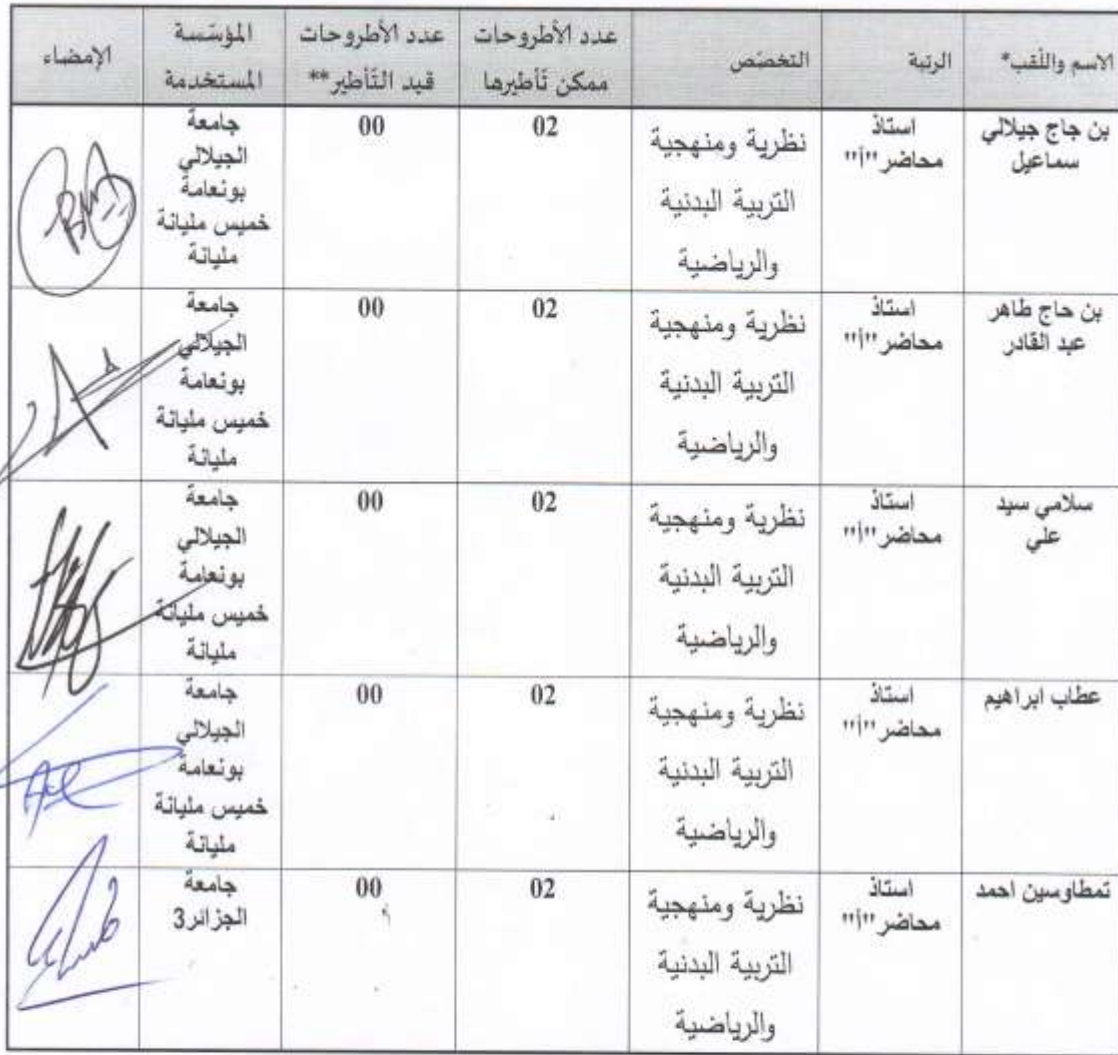 الاسم واللقب*
الرتبة
التخصص
عدد الأطروحات
ممكن تأطيرها
عدد الأطروحات
قيد التأطير**
المؤسسة
المستخدمة
الإمضاء
بن جاج جيلالي
سماعيل
استاذ
محاضر"أ"
نظرية ومنهجية
التربية البدنية
والرياضية
02
00
جامعة
الجيلالي
بونعامة
خميس مليانة
مليانة
بن حاج طاهر
عبد القادر
استاذ
محاضر"أ"
نظرية ومنهجية
التربية البدنية
والرياضية
02
00
جامعة
الجيلالي
بونعامة
خميس مليانة
مليانة
سلامي سيد
علي
استاذ
محاضر"أ"
نظرية ومنهجية
التربية البدنية
والرياضية
02
00
جامعة
الجيلالي
بونعامة
خميس مليانة
مليانة
عطاب ابراهيم
استاذ
محاضر"أ"
نظرية ومنهجية
التربية البدنية
والرياضية
02
00
جامعة
الجيلالي
بونعامة
خميس مليانة
مليانة
تمطاوسين احمد
استاذ
محاضر"أ"
نظرية ومنهجية
التربية البدنية
والرياضية
02
00
جامعة
الجزائر3